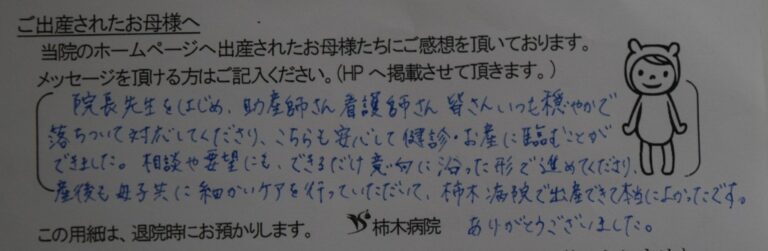 ご出産されたお母様へ
当院のホームページへ出産されたお母様たちにご感想を頂いております。
メッセージを頂ける方はご記入ください。(HPへ掲載させて頂きます。)
院長先生をはじめ、助産師さん看護師さん皆さんいつも穏やかで
落ちついて対応してくださり、こちらも安心して健診・お産に臨むことが
できました。相談や要望にも、できるだけ意向に沿った形で進めてくださり、
産後も母子共に細かいケアを行っていただいて、柿木病院で出産できて本当によかったです。
ありがとうございました。
この用紙は、退院時にお預かりします。 柿木病院